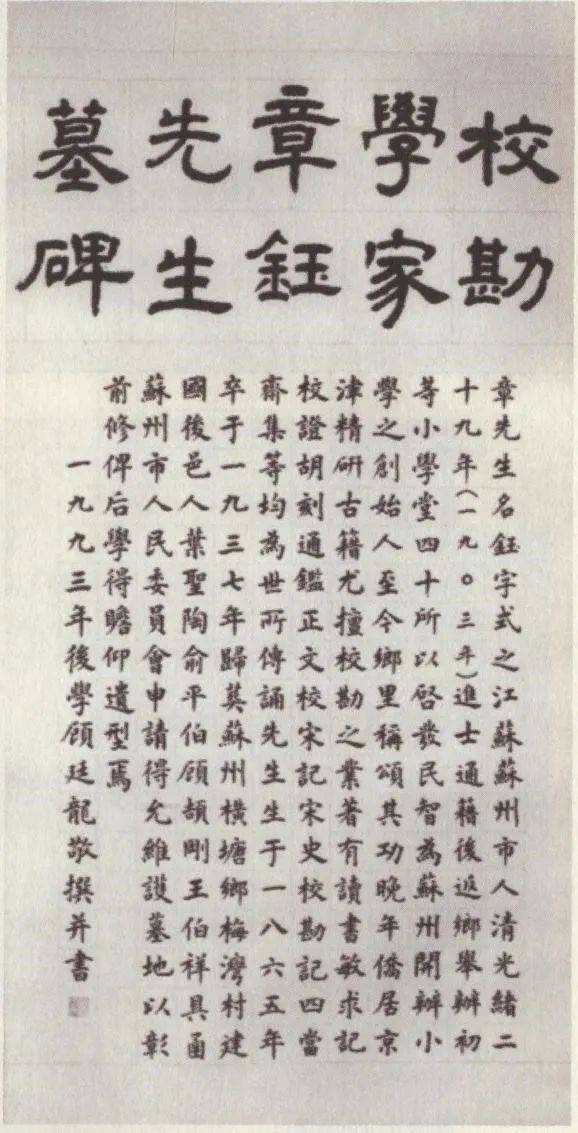 校勘
學家
章鈺
先生
墓碑
章先生名鈺字式之江蘇蘇州市人清光緒二
十九年(一九○三年)進士通籍後返鄉舉辦初
等小學堂四十所以啓發民智為蘇州開辦小
學之創始人至今鄉里稱頌其功晚年僑居京
津精研古籍尤擅校勘之業著有讀書敏求記
校證胡刻通鑑正文校宋記宋史校勘記四當
齋集等均為世所傳誦先生生于一八六五年
卒于一九三七年歸葬蘇州橫塘鄉梅灣村建
國後邑人葉聖陶俞平伯顧頡剛王伯祥具函
蘇州市人民委員會申請得允維護墓地以彰
前修俾后學得瞻仰遺型焉
一九九三年後學顧廷龍敬撰并書